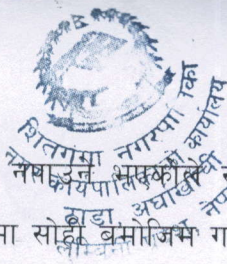 शितगंगा नगरपालिका
नगर कार्यपालिकाको कार्यालय
ठाडा अर्घाखाँची
लुम्बिनी
नपाउने भएकोले
मा सोही बमोजिम ग